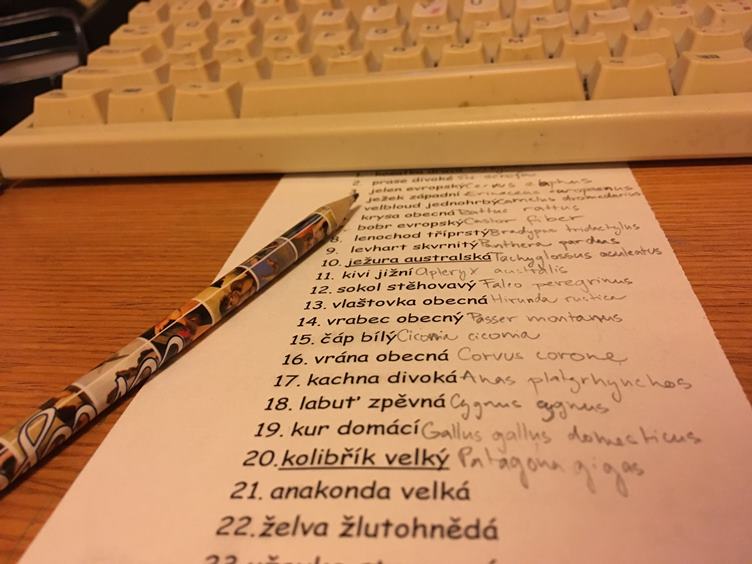 2. prase divoké Sus scrofa
jelen evropský Cervus elaphus
ježek západní Erinaceus europaeus
velbloud jednohrbý Camelus dromedarius
krysa obecná Rattus rattus
bobr evropský Castor fiber
8. lenochod tříprstý Bradypus tridactylus
9. levhart skvrnitý Panthera pardus
10. ježura australská Tachyglossus aculeatus
11. kivi jižní Apteryx australis
12. sokol stěhovavý Falco peregrinus
13. vlaštovka obecná Hirundo rustica
14. vrabec obecný Passer montanus
15. čáp bílý Ciconia ciconia
16. vrána obecná Corvus corone
17. kachna divoká Anas platyrhynchos
18. labuť zpěvná Cygnus cygnus
19. kur domácí Gallus gallus domesticus
20. kolibřík velký Patagona gigas
21. anakonda velká
22. želva žlutohnědá